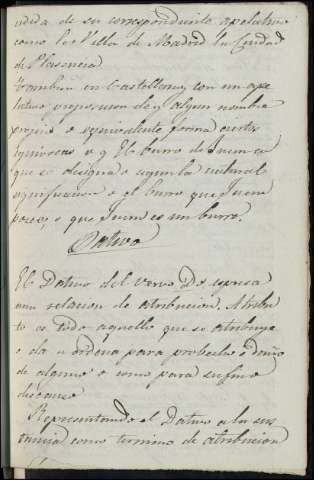 edida de su correspondiente apelativo
como la Villa de Madrid la Ciudad
de Plasencia
Tambien en Castellano, con un ape
lativo y espresion de algun nombre
propio o equivalente forma ciertos
equivocos v g El burro de Juan en
que se designa segun la natural
significacion o el burro que Juan
posee, o que Juan es un burro.
Dativo
El Dativo del verbo Do espresa
una relacion de atribucion. Atribu
to es todo aquello que se atribuye
o da u ordena para probecho o daño
de alguno o como para su fin o
descanso
Representando el Dativo a la sus
tancia como termino de atribucion